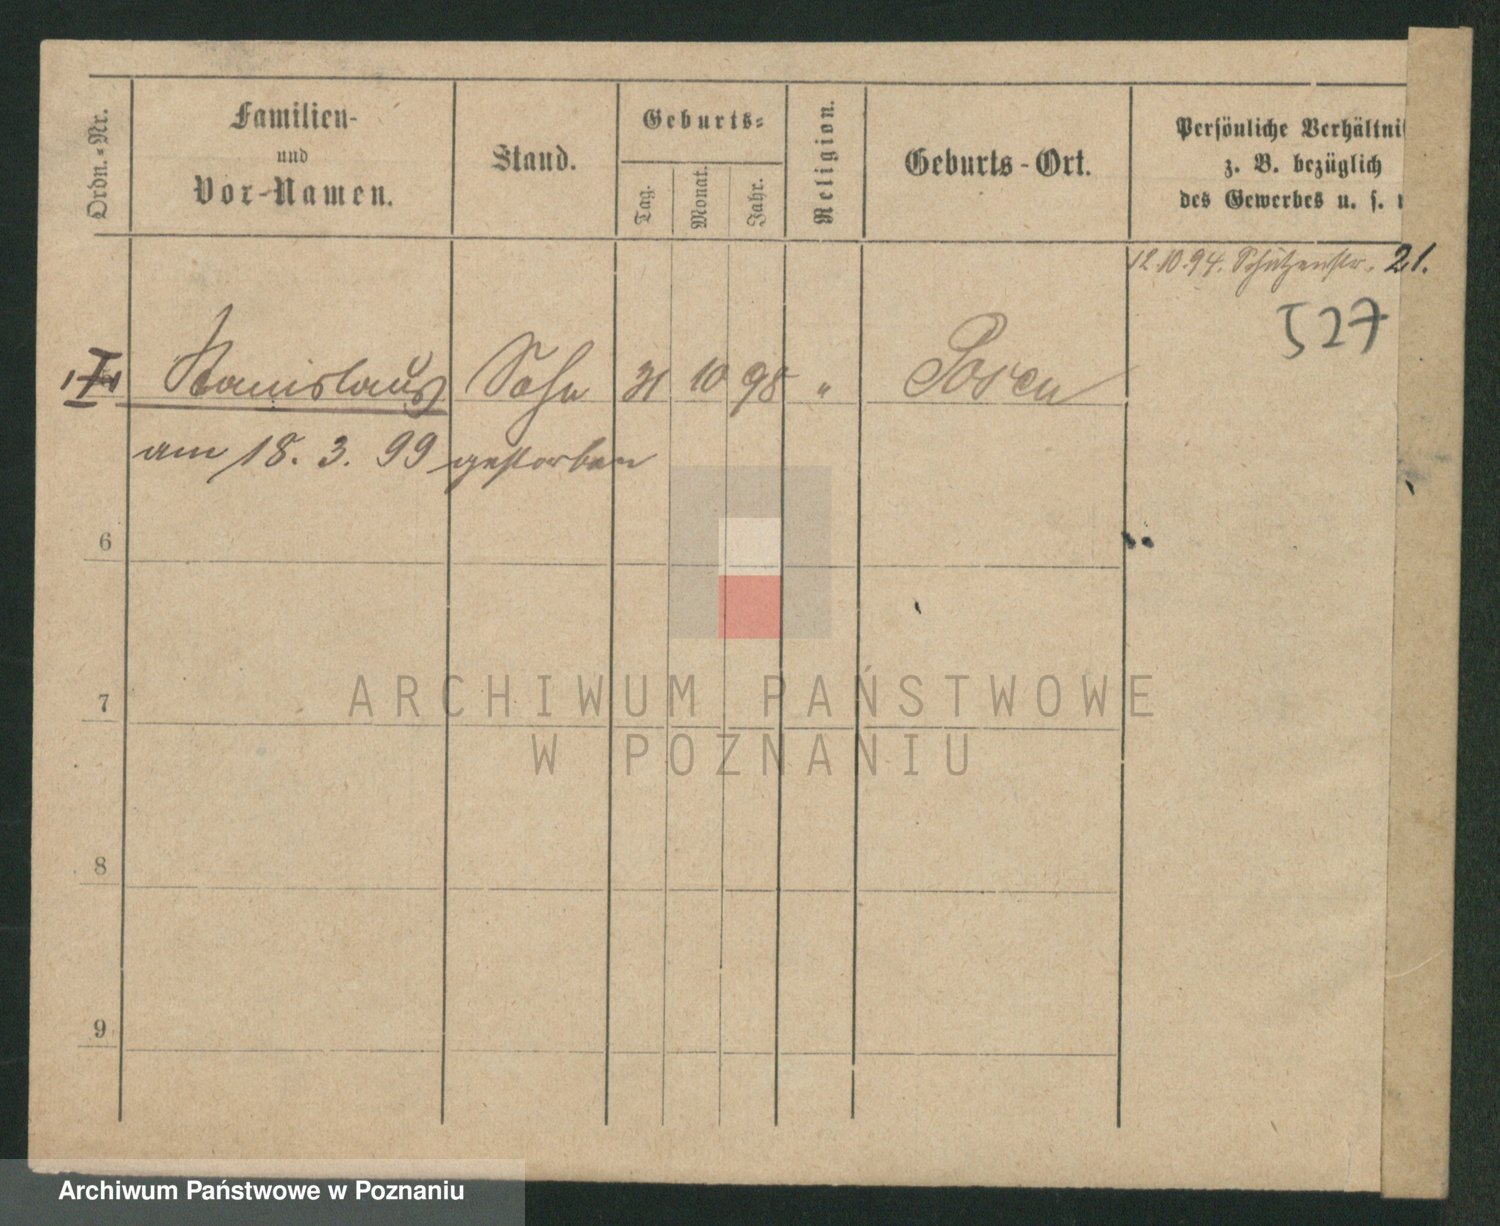 Ordn.-Nr.
Familien-
und
Vor-Namen.
Stand.
Geburts-
Tag.
Monat.
Jahr.
Religion.
Geburts-Ort.
Persönliche Verhältni
z. B. bezüglich
des Gewerbes u. s.
12.10.94. Schützenstr. 21.
527
Stanislaus Sohn 31 10 98 " Posen
am 18. 3. 99 gestorben
6
7
8
9
ARCHIWUM PAŃSTWOWE
W POZNANIU
Archiwum Państwowe w Poznaniu